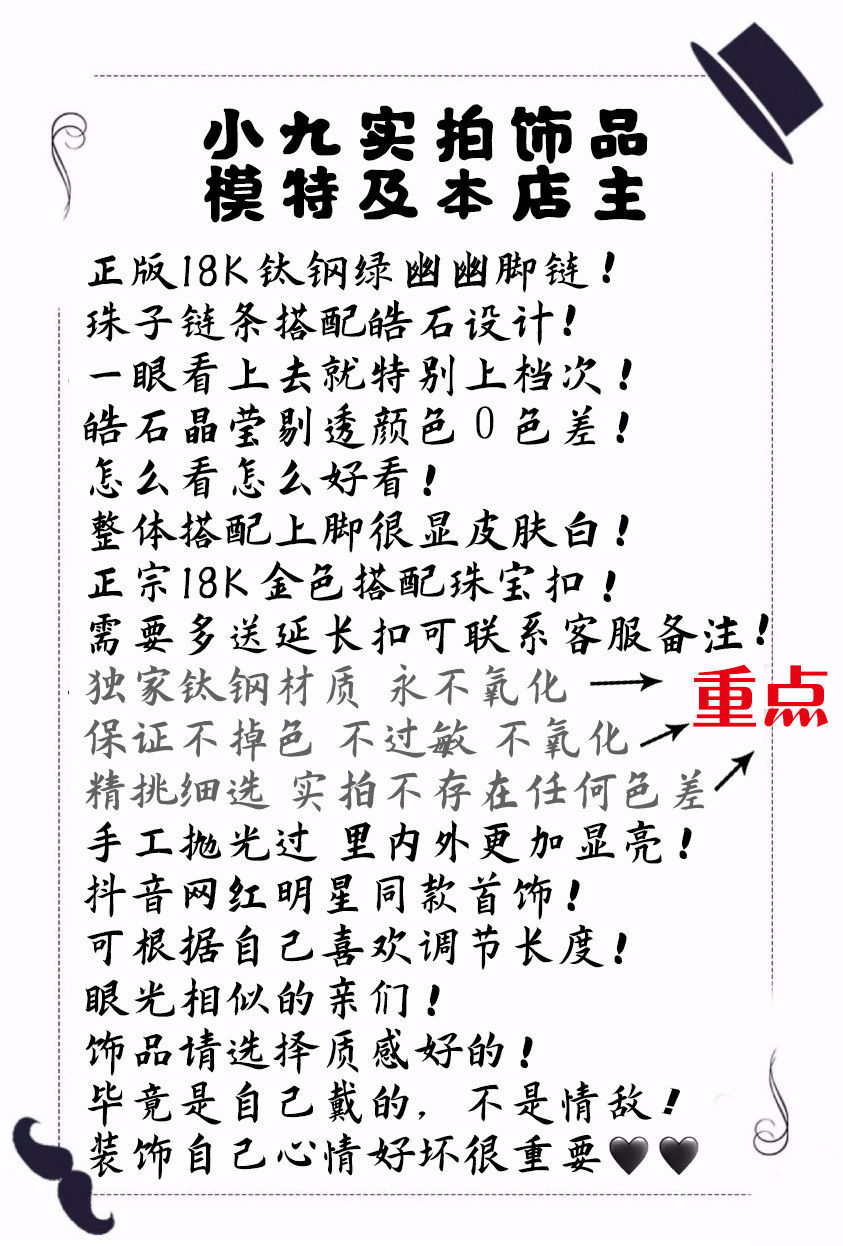 小九实拍饰品
模特及本店主
正版18K钛钢绿幽幽脚链！
珠子链条搭配皓石设计！
一眼看上去就特别上档次！
皓石晶莹剔透颜色0色差！
怎么看怎么好看！
整体搭配上脚很显皮肤白！
正宗18K金色搭配珠宝扣！
需要多送延长扣可联系客服备注！
独家钛钢材质 永不氧化
重点
保证不掉色 不过敏 不氧化
精挑细选 实拍不存在任何色差
手工抛光过 里内外更加显亮！
抖音网红明星同款首饰！
可根据自己喜欢调节长度！
眼光相似的亲们！
饰品请选择质感好的！
毕竟是自己戴的，不是情敌！
装饰自己心情好坏很重要🖤🖤